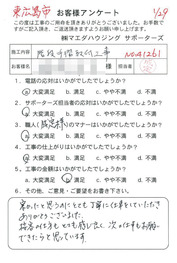 東広島市
お客様アンケート
1/29
この度は工事のご用命を頂きありがとうございました。お手数で
すがご記入頂き、ご返送頂きますようお願い申し上げます。
㈱マエダハウジング サポーターズ
施工内容 階段手摺取付工事 NO.A1261
1．電話の応対はいかがでしたでしょうか？
ⓐ 大変満足 b. 満足 c. やや不満 d. 不満
2．サポーターズ担当者の応対はいかがでしたでしょうか？
ⓐ 大変満足 b. 満足 c. やや不満 d. 不満
3．職人のマナーはいかがでしたでしょうか？
大変満足 b. 満足 c. やや不満 d. 不満
4．工事の仕上がりはいかがでしたでしょうか？
大変満足 b. 満足 c. やや不満 d. 不満
5．工事代金はいかがでしたでしょうか？
a. 大変満足 満足 c. やや不満 d. 不満
6．その他、ご意見・ご要望をお書き下さい。
とても丁寧に仕事をしていただき
ありがとうございました。
とても感じ良く、次の仕事もお願い
できたらと思っています。